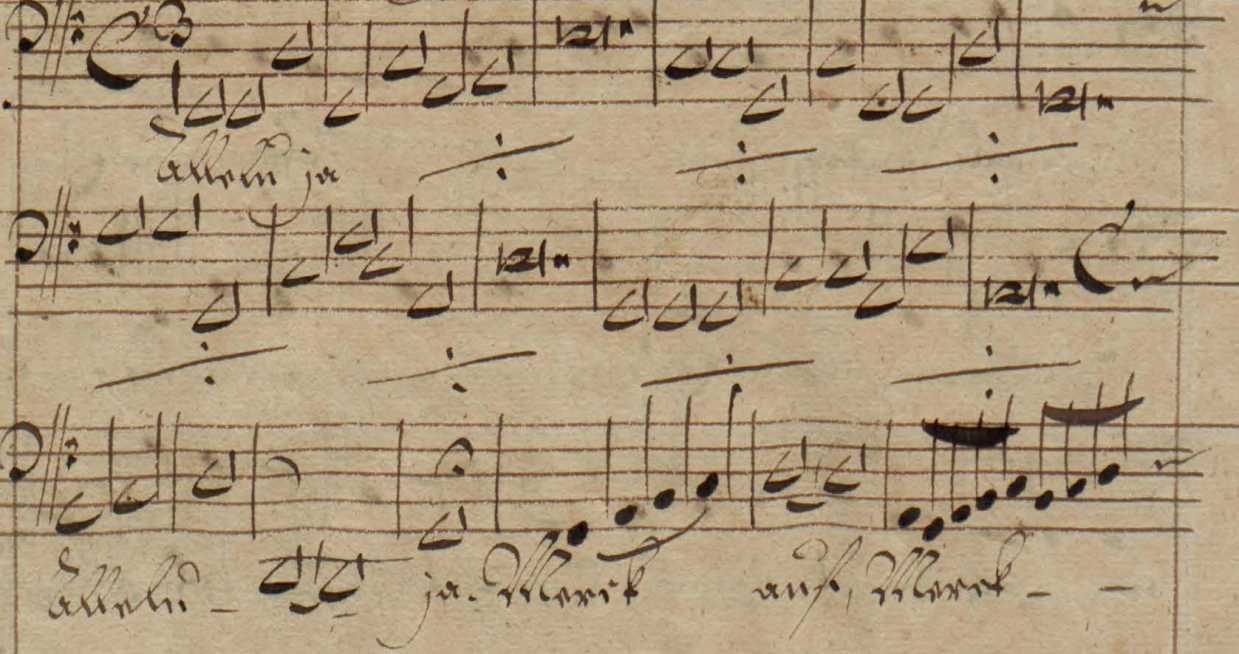 Allelu ja
Allelu - - ja. Merck auf, Merck - -